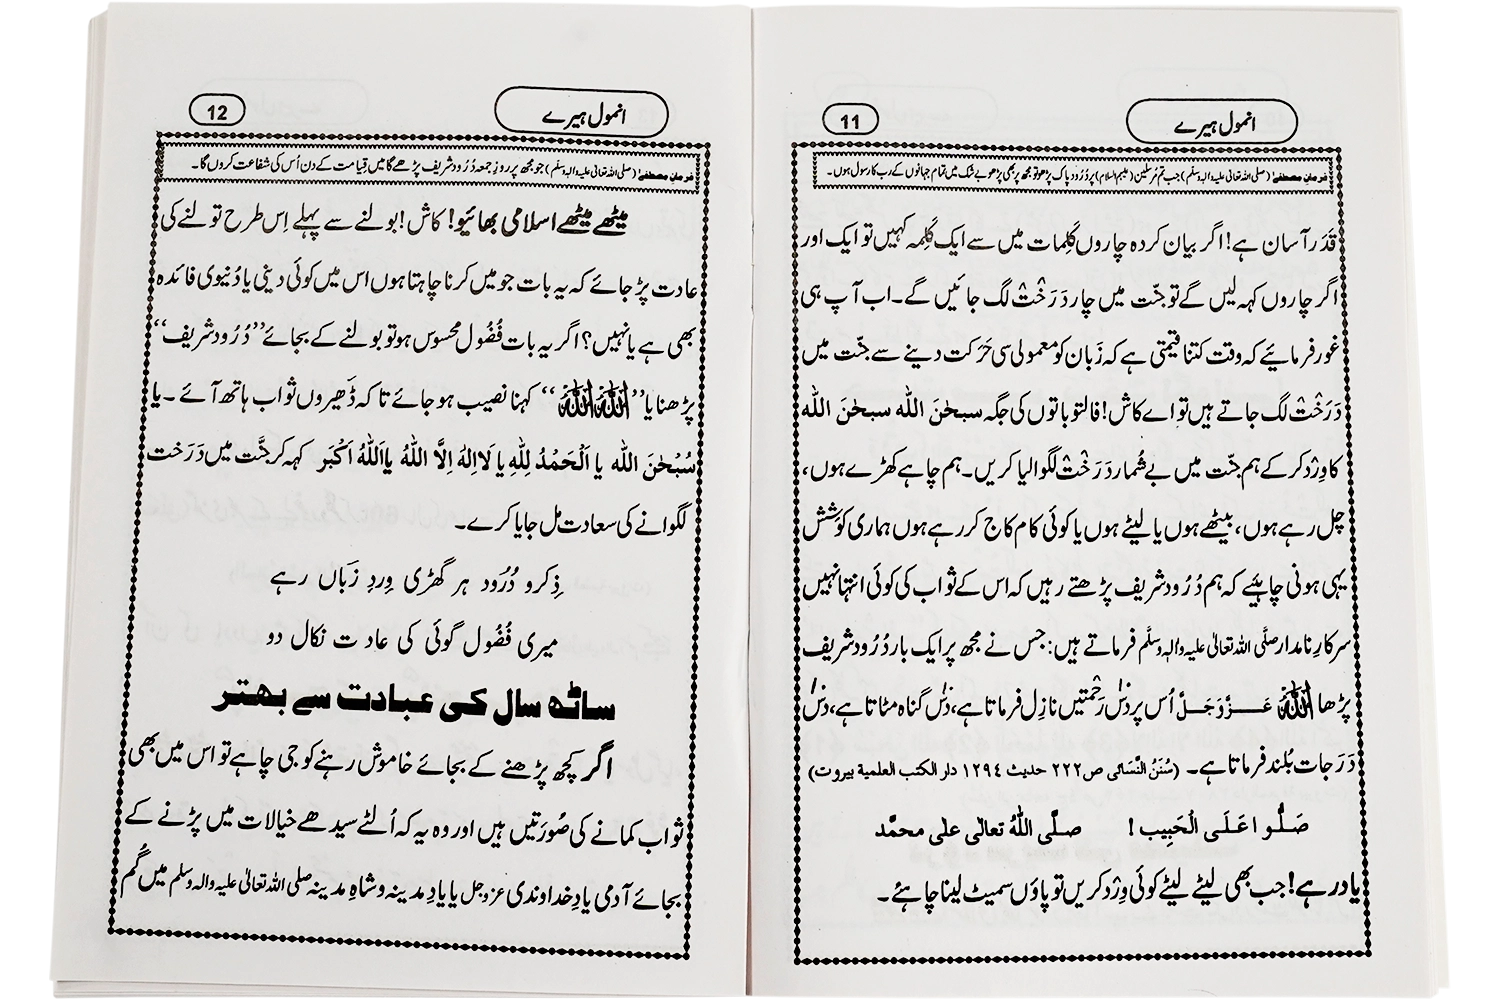 انمول ہیرے
11
فرمانِ مصطفےٰ (صلی اللہ تعالیٰ علیہ والہ وسلم) جب تم مُرسلین (علیہم السلام) پر دُرُود پاک پڑھو تو مجھ پر بھی پڑھو بے شک میں تمام جہانوں کے رب کا رسول ہوں۔
قَدَر آسان ہے! اگر بیان کردہ چاروں کَلِمات میں سے ایک کَلِمہ کہیں تو ایک اور
اگر چاروں کہہ لیں گے تو جنّت میں چار دَرَخْت لگ جائیں گے۔ اب آپ ہی
غور فرمائیے کہ وقت کتنا قیمتی ہے کہ زَبان کو معمولی سی حَرَکت دینے سے جنّت میں
دَرَخْت لگ جاتے ہیں تو اے کاش! فالتو باتوں کی جگہ سبحٰنَ اللہ سبحٰنَ اللہ
کا وِرْد کر کے ہم جنّت میں بے شُمار دَرَخْت لگوا لیا کریں۔ ہم چاہے کھڑے ہوں،
چل رہے ہوں، بیٹھے ہوں یا لیٹے ہوں یا کوئی کام کاج کر رہے ہوں ہماری کوشش
یہی ہونی چاہیے کہ ہم دُرُود شریف پڑھتے رہیں کہ اس کے ثواب کی کوئی انتہا نہیں
سرکارِ نامدار صلَّی اللہ تعالیٰ علیہ والہٖ وسلَّم فرماتے ہیں: جس نے مجھ پر ایک بار دُرُود شریف
پڑھا اللّٰہ عَزَّوَجَلَّ اُس پر دس رَحْمتیں نازِل فرماتا ہے، دس گناہ مٹاتا ہے، دس
دَرَجات بُلند فرماتا ہے۔ (سُنَنُ النَّسَائی ص۲۲۲ حدیث ۱۲۹٤ دار الکتب العلمیة بیروت)
صَلُّو اعَلَی الْحَبِیب! صلَّی اللہُ تعالٰی علٰی محمَّد
یاد رہے! جب بھی لیٹے لیٹے کوئی وِرْد کریں تو پاؤں سمیٹ لینا چاہئے۔
انمول ہیرے
12
فرمانِ مصطفےٰ (صلی اللہ تعالیٰ علیہ والہ وسلم) جو مجھ پر روزِ جمعہ دُرُود شریف پڑھے گا میں قیامت کے دن اُس کی شفاعت کروں گا۔
میٹھے میٹھے اسلامی بھائیو! کاش! بولنے سے پہلے اِس طرح تولنے کی
عادت پڑ جائے کہ یہ بات جو میں کرنا چاہتا ہوں اس میں کوئی دینی یا دُنیوی فائدہ
بھی ہے یا نہیں؟ اگر یہ بات فُضُول محسوس ہو تو بولنے کے بجائے ’’دُرُود شریف‘‘
پڑھنا یا ’’اللّٰہُ اللّٰہ‘‘ کہنا نصیب ہو جائے تاکہ ڈھیروں ثواب ہاتھ آئے۔ یا
سُبْحٰنَ اللہ یا اَلْحَمْدُ لِلّٰہِ یا لَا اِلٰہَ اِلَّا اللہُ یا اَللہُ اَکْبَر کہہ کر جنَّت میں دَرَخت
لگوانے کی سعادت مل جایا کرے۔
ذِکر و دُرُود ہر گھڑی وِردِ زَباں رہے
میری فُضُول گوئی کی عادت نکال دو
ساٹھ سال کی عبادت سے بھتر
اگر کچھ پڑھنے کے بجائے خاموش رہنے کو جی چاہے تو اس میں بھی
ثواب کمانے کی صُورَتیں ہیں اور وہ یہ کہ اُلٹے سیدھے خیالات میں پڑنے کے
بجائے آدمی یادِ خداوندی عزوجل یا یادِ مدینہ و شاہِ مدینہ صلی اللہ تعالیٰ علیہ والہ وسلم میں گُم